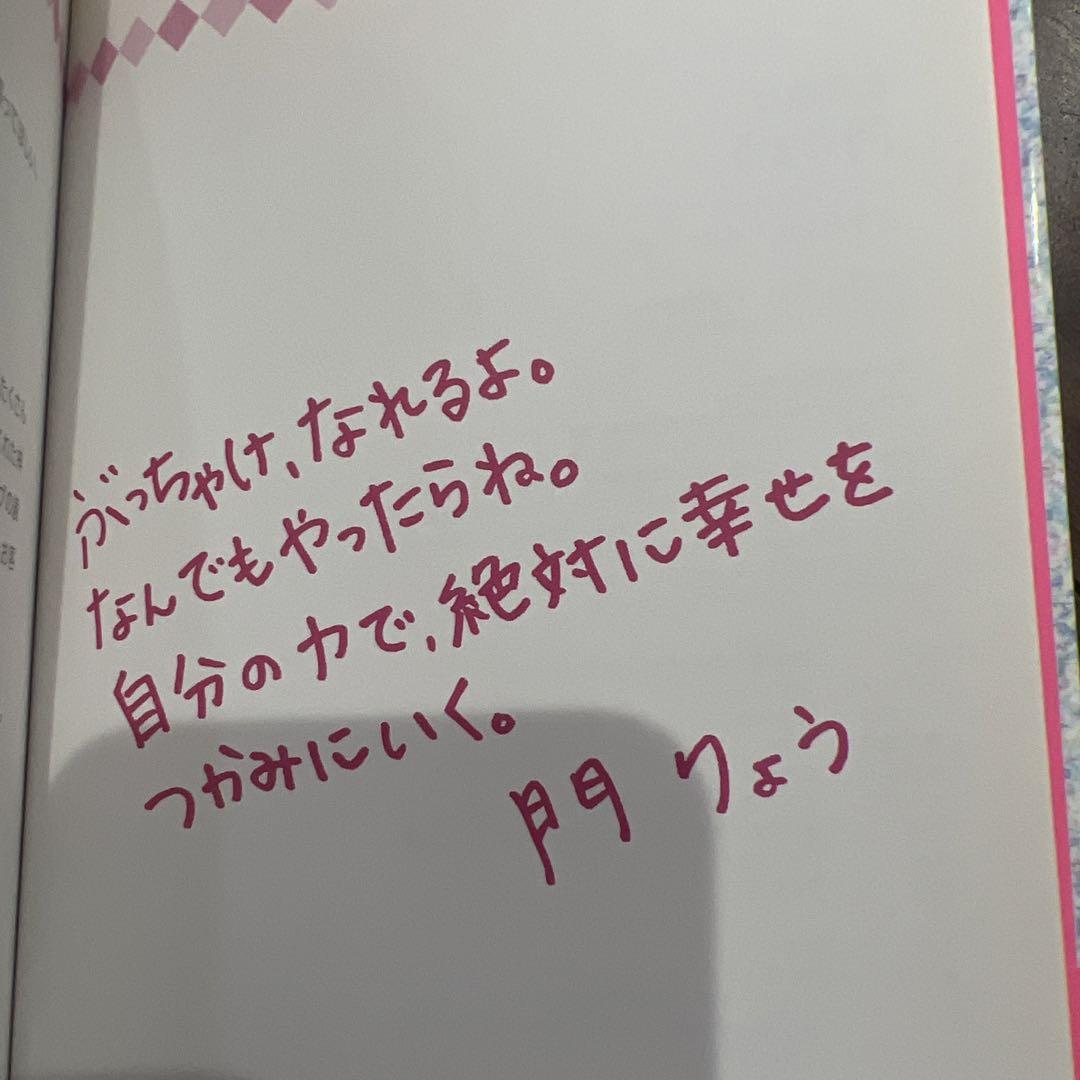 ぶっちゃけ、なれるよ。
なんでもやったらね。
自分の力で、絶対に幸せを
つかみにいく。
門りょう